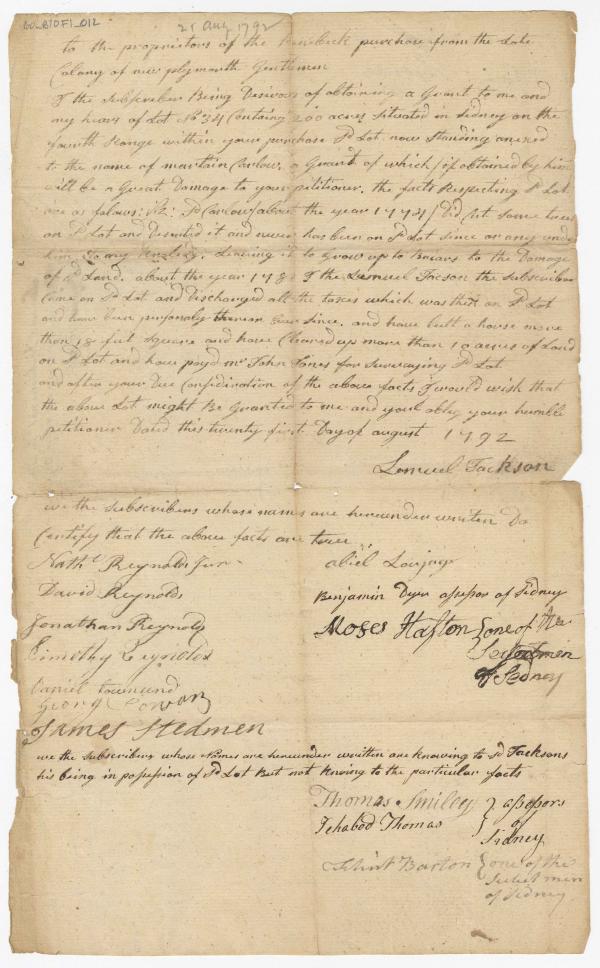 60_B10F1_012
21 Aug 1792
to the proprietors of the Kenebeck purchase from the Late
Colony of new plymouth Gentlemen
I the Subscriber Being Desirous of obtaining a Grant to me and
my heirs of Lot No 34 Containg 200 acres Situated in Sidney on the
fourth Range within your purchase Sd Lot now Standing anexed
to the name of martain Carlow, a Grant of which if obtained by him
will be a Great Damage to your petitioner. the facts Respecting Sd Lot
are as falows: Viz: Sd Carlow about the year 1774 Did Cut Some trees
on Sd Lot and Deserted it and never has been on Sd Lot Since or any under
him to my Knoledg. Leaving it to Grow up to Briars to the Damage
of Sd Land. about the year 178 I the Lemuel Jacson the Subscriber
Came on Sd Lot and Discharged all the taxes which was then on Sd Lot
and have been personaly thereon Ever Since. and have built a house more
than 18 feet Square and have Cleared up more than 10 acres of Land
on Sd Lot and have payd mr John Jones for Surveaying Sd Lot
and after your Due Consideration of the above facts I would wish that
the above Lot might Be Granted to me and youl oblig your humble
petitioner Dated this twenty first Day of august 1792
Lemuel Jackson
we the Subscribers whose names are hereunder written Do
Certify that the above facts are trew
Nathl Reynolds Jur
abiel Lovejoy
David Reynolds
Benjamin Dyer assessor of Sidney
Jonathan Reynolds
Moses Hafton one of the
Selectmen
of Sedney
Timothy Reynolds
Daniel townsend
Georg Cowan
James Stedmen
we the Subscribers whose Names are hereunder written are knowing to sd Jacksons
his being in possession of Sd Lot But not knowing to the particular facts
Thomas Smiley
Ichabod Thomas
assessors
of
Sidney
Flint Barton one of the
Select men
of Sidney